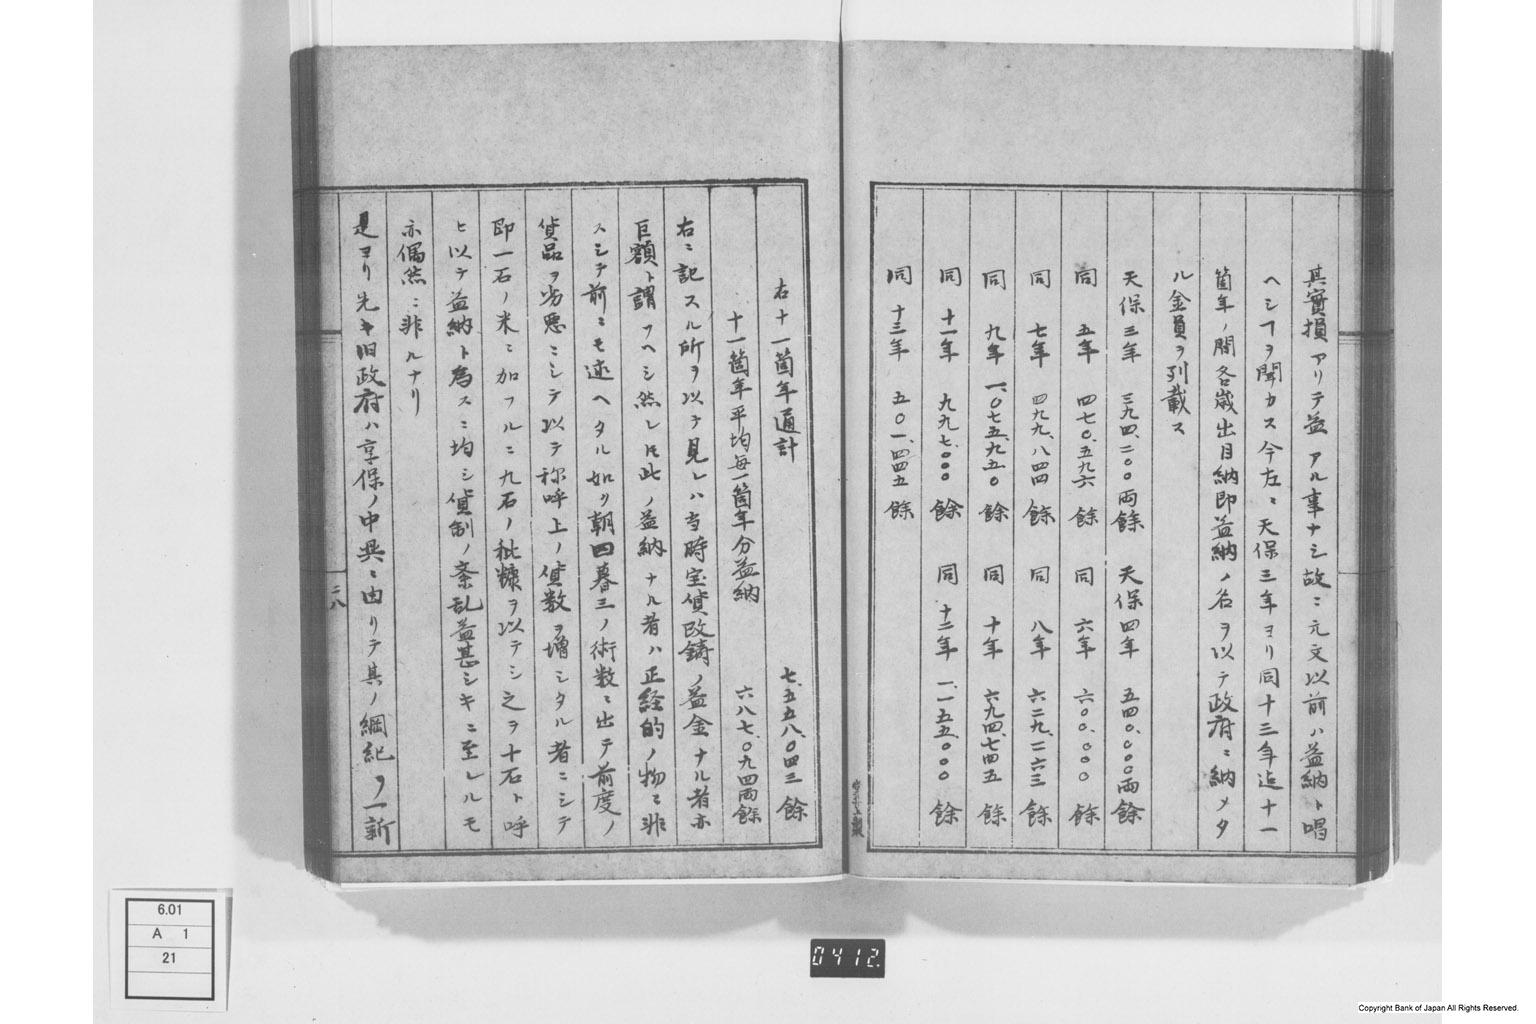 其實損アリテ益アル事ナシ故ニ元文以前ハ益納ト唱
ヘシヿヲ聞カス今左ニ天保三年ヨリ同十三年迄十一
箇年ノ間各歳出目納即益納ノ名ヲ以テ政府ニ納メタ
ル金員ヲ列載ス
天保三年 三九四、二〇〇両餘 天保四年 五四〇、〇〇〇両餘
同 五年 四七〇、五九六 餘 同 六年 六〇〇、〇〇〇 餘
同 七年 四九九、八四四 餘 同 八年 六二九、二六三 餘
同 九年 一、〇七五、九五〇 餘 同 十年 六九四、七四五 餘
同 十一年 九九七、〇〇〇 餘 同 十二年 一、一五五、〇〇〇 餘
同 十三年 五〇一、四四五 餘
右十一箇年通計 七、五五八、〇四三 餘
十一箇年平均毎一箇年分益納 六八七、〇九四両餘
右ニ記スル所ヲ以テ見レハ当時宝貨改鋳ノ益金ナル者亦
巨額ト謂フヘシ然レ𪜈此ノ益納ナル者ハ正経的ノ物ニ非
スシテ前ニモ述ヘタル如ク朝四暮三ノ術数ニ出テ前度ノ
貨品ヲ劣悪ニシテ以テ称呼上ノ貨数ヲ増シタル者ニシテ
即一石ノ米ニ加フルニ九石ノ粃糠ヲ以テシ之ヲ十石ト呼
ヒ以テ益納ト為スニ均シ貨制ノ紊乱益甚シキニ至レルモ
亦偶然ニ非ルナリ
是ヨリ先キ旧政府ハ享保ノ中興ニ由リテ其ノ綱紀ヲ一新
二八
6.01
A 1
21
0412.
Copyright Bank of Japan All Rights Reserved.